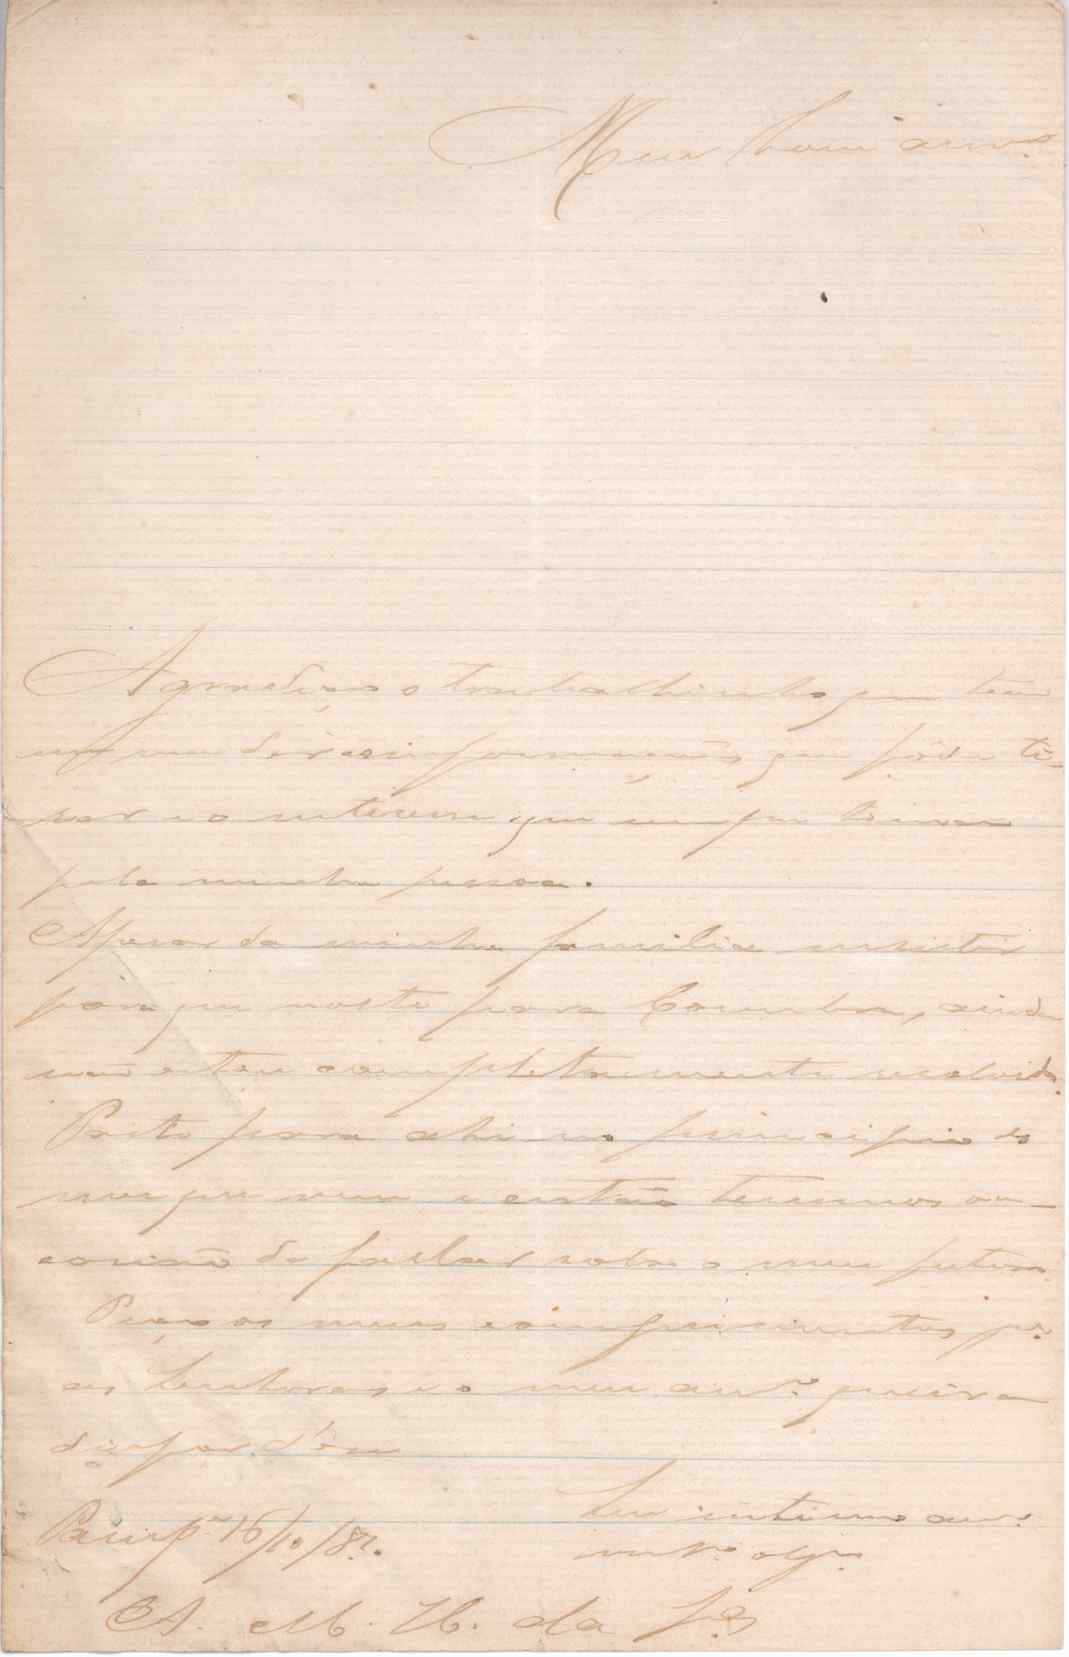 Meu bom am.º
Agradeço o trabalhinho que teve
em me dar as informações que pôde ti-
rar e o interesse que sempre toma
pela minha pessoa.
Apesar da minha familia insistir
para que volte para Coimbra, ainda
não estou completamente resolvido.
Parto para ahi no principio do
mez que vem e então teremos oc-
casião de fallar sobre o meu futuro.
Peço os meus comprimentos p.ª
as Senhoras e o meu am.º queira
dispôr d'ou
16/10/87.
Seu intimo am.º
mt.º obg.º
A. M. H. da